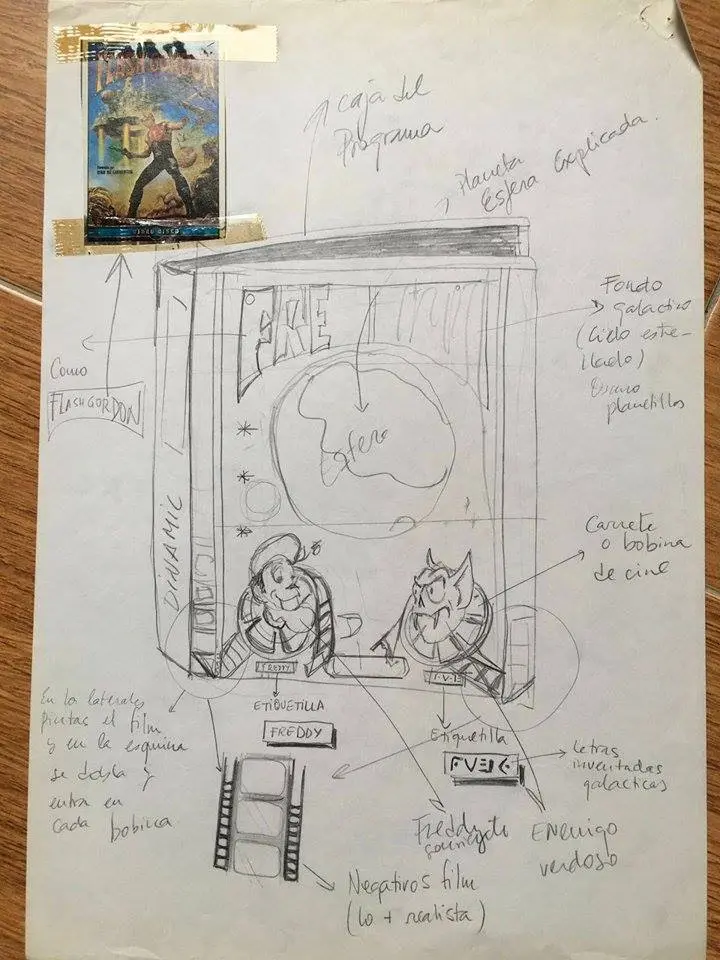 FLASH GORDON
caja del
Programa
Planeta
Esfera Explicada.
Fondo
galactico
(Cielo estre-
llado)
planetillos
Como
FLASH GORDON
FRE
Esfera
DINAMIC
Carrete
o bobina
de cine
FREDDY
ETIQUETILLA
FREDDY
Etiquetilla
Letras
inventadas
galacticas
En los laterales
pintas el film
y en la esquina
se dobla y
entra en
cada bobina
Freddy
sonriente
ENEMIGO
verdoso
Negativos film
(lo + realista)